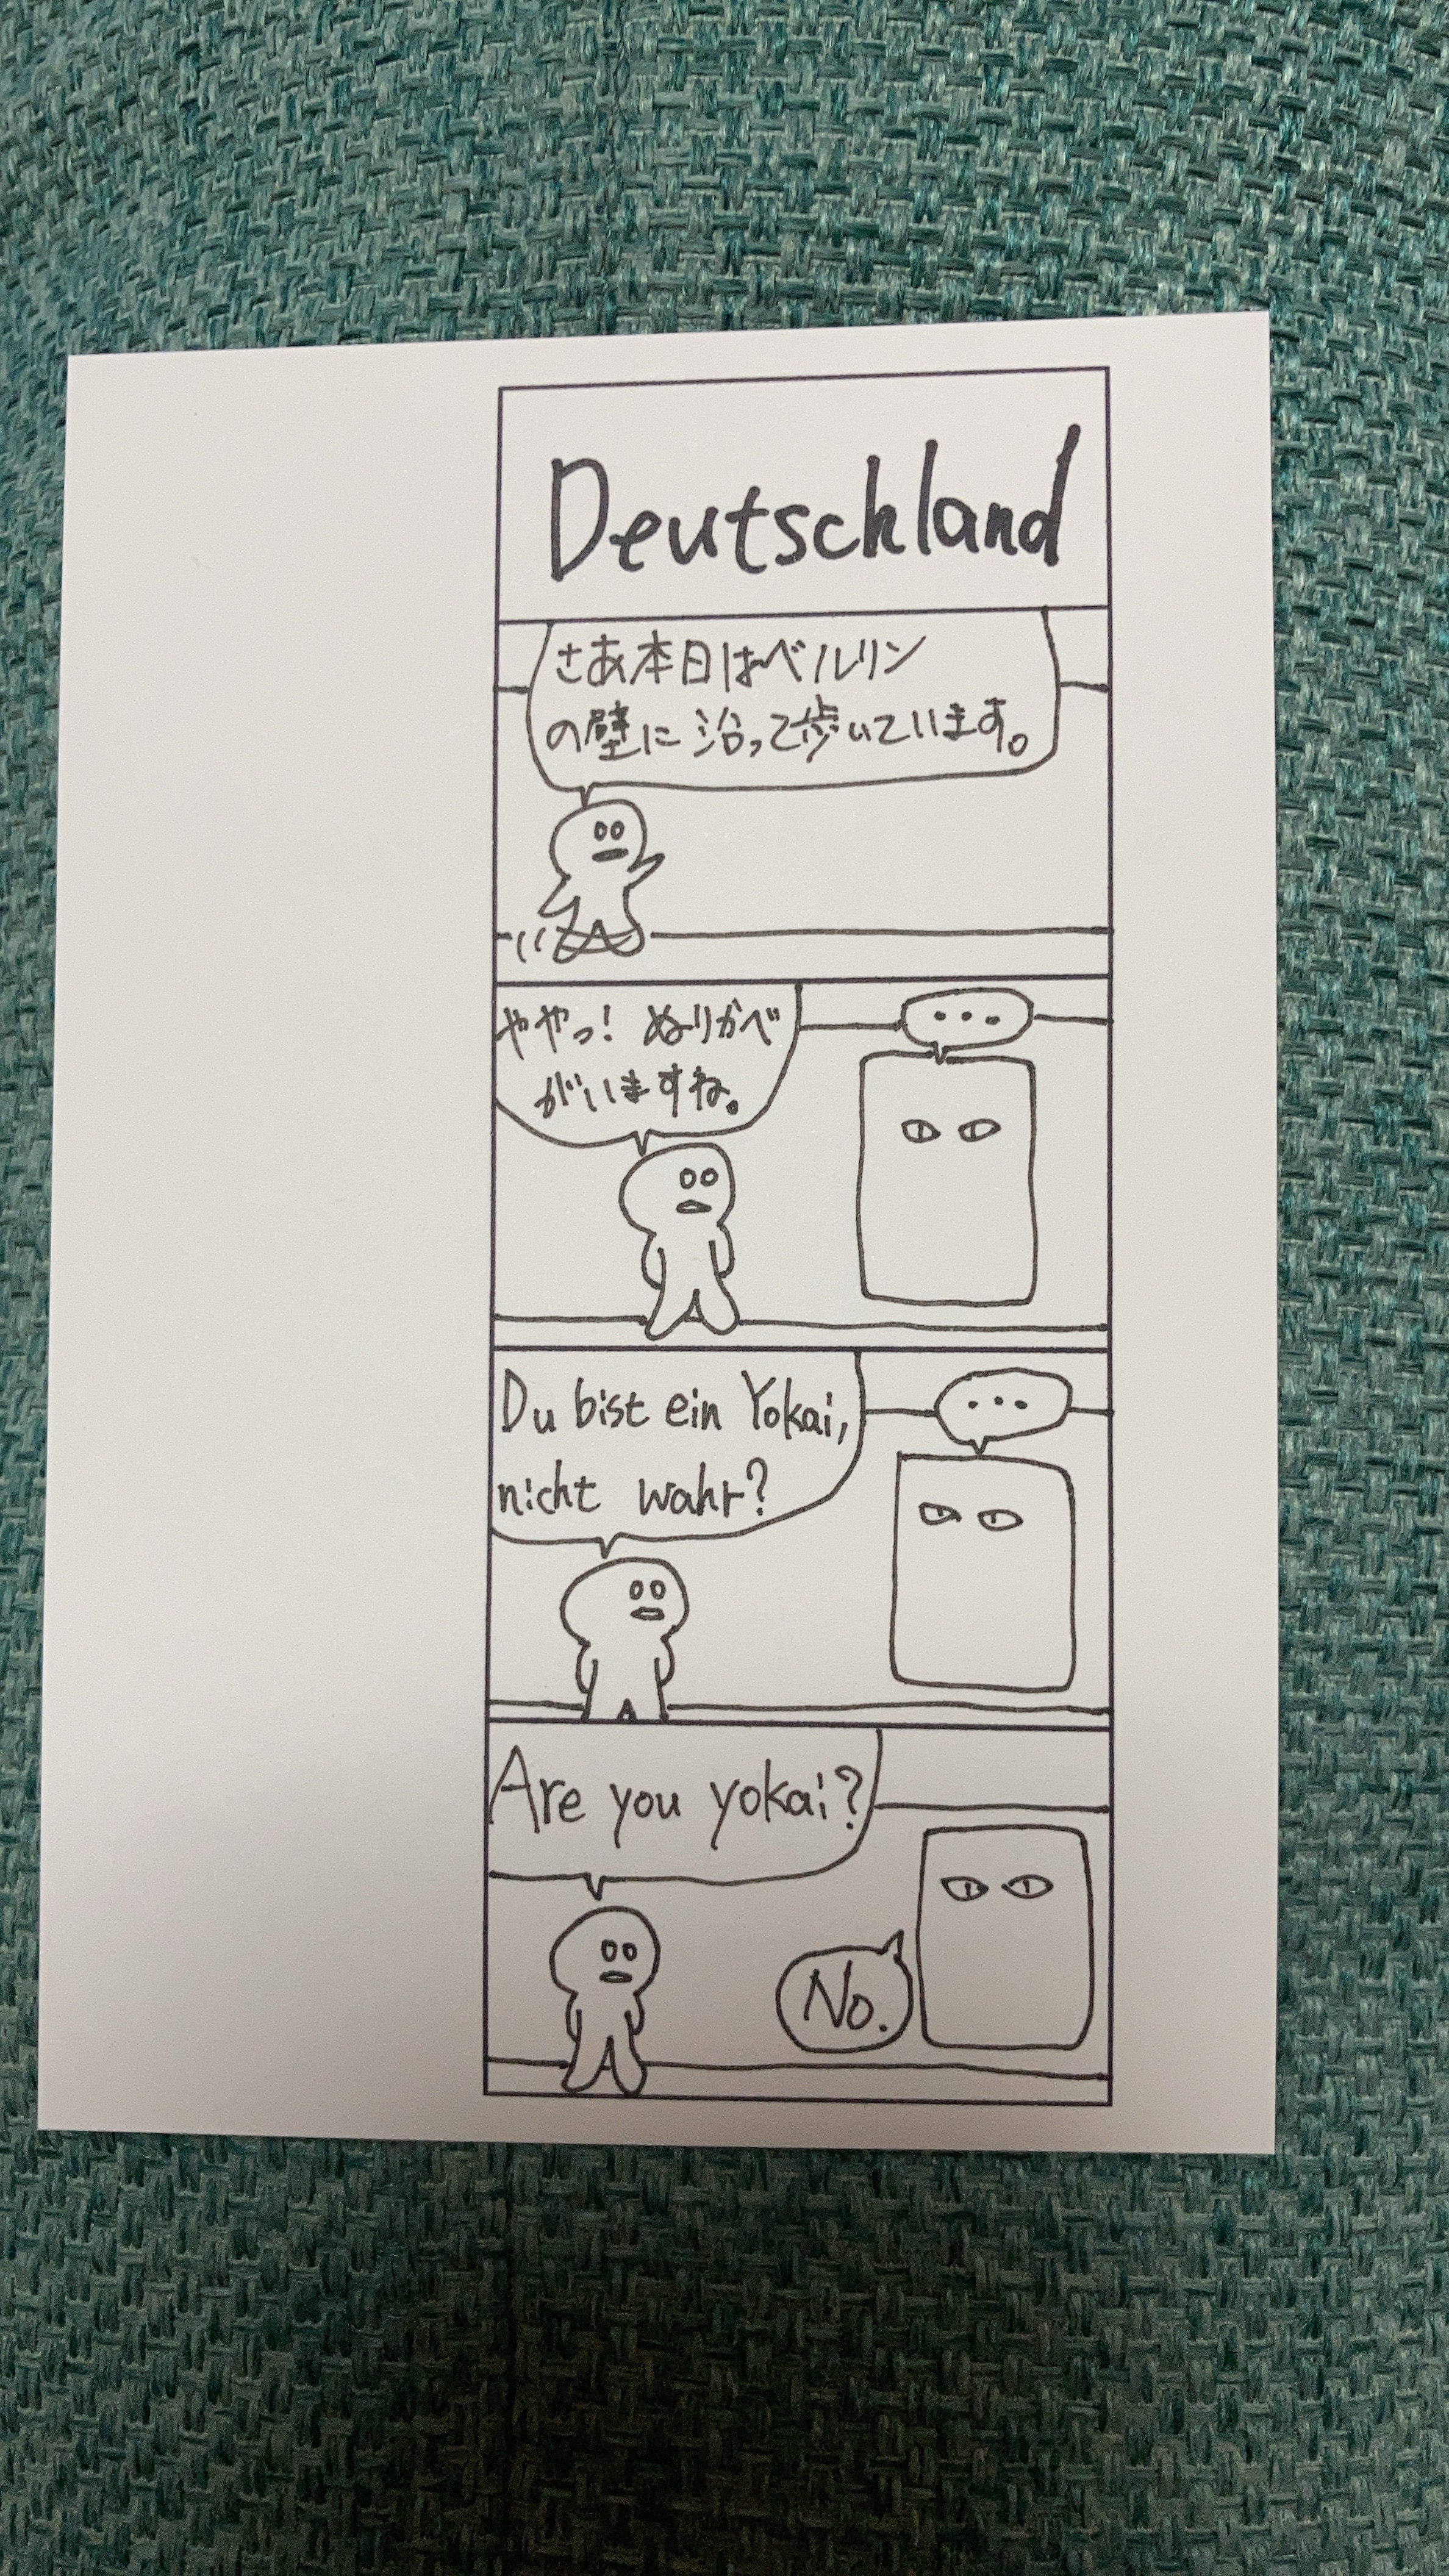 Deutschland
さあ本日はベルリン
の壁に沿って歩いています。
ややっ！ ぬりかべ
がいますね。
...
Du bist ein Yokai,
nicht wahr?
...
Are you yokai?
No.